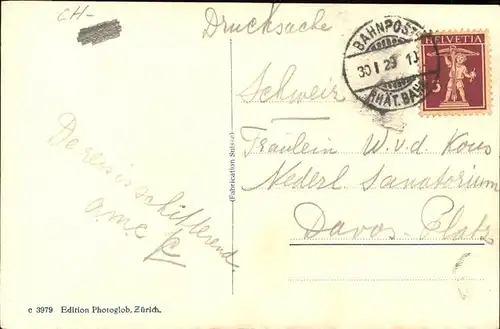 CH-
Drucksache
BAHNPOST
30 I 29
RHÄT. BAHN
HELVETIA
3
Schweiz
Fräulein W. v. d. Kous
Nederl Sanatorium
Davos-Platz
De reis is schitterend.
(Fabrication Suisse)
c 3979 Edition Photoglob, Zürich.